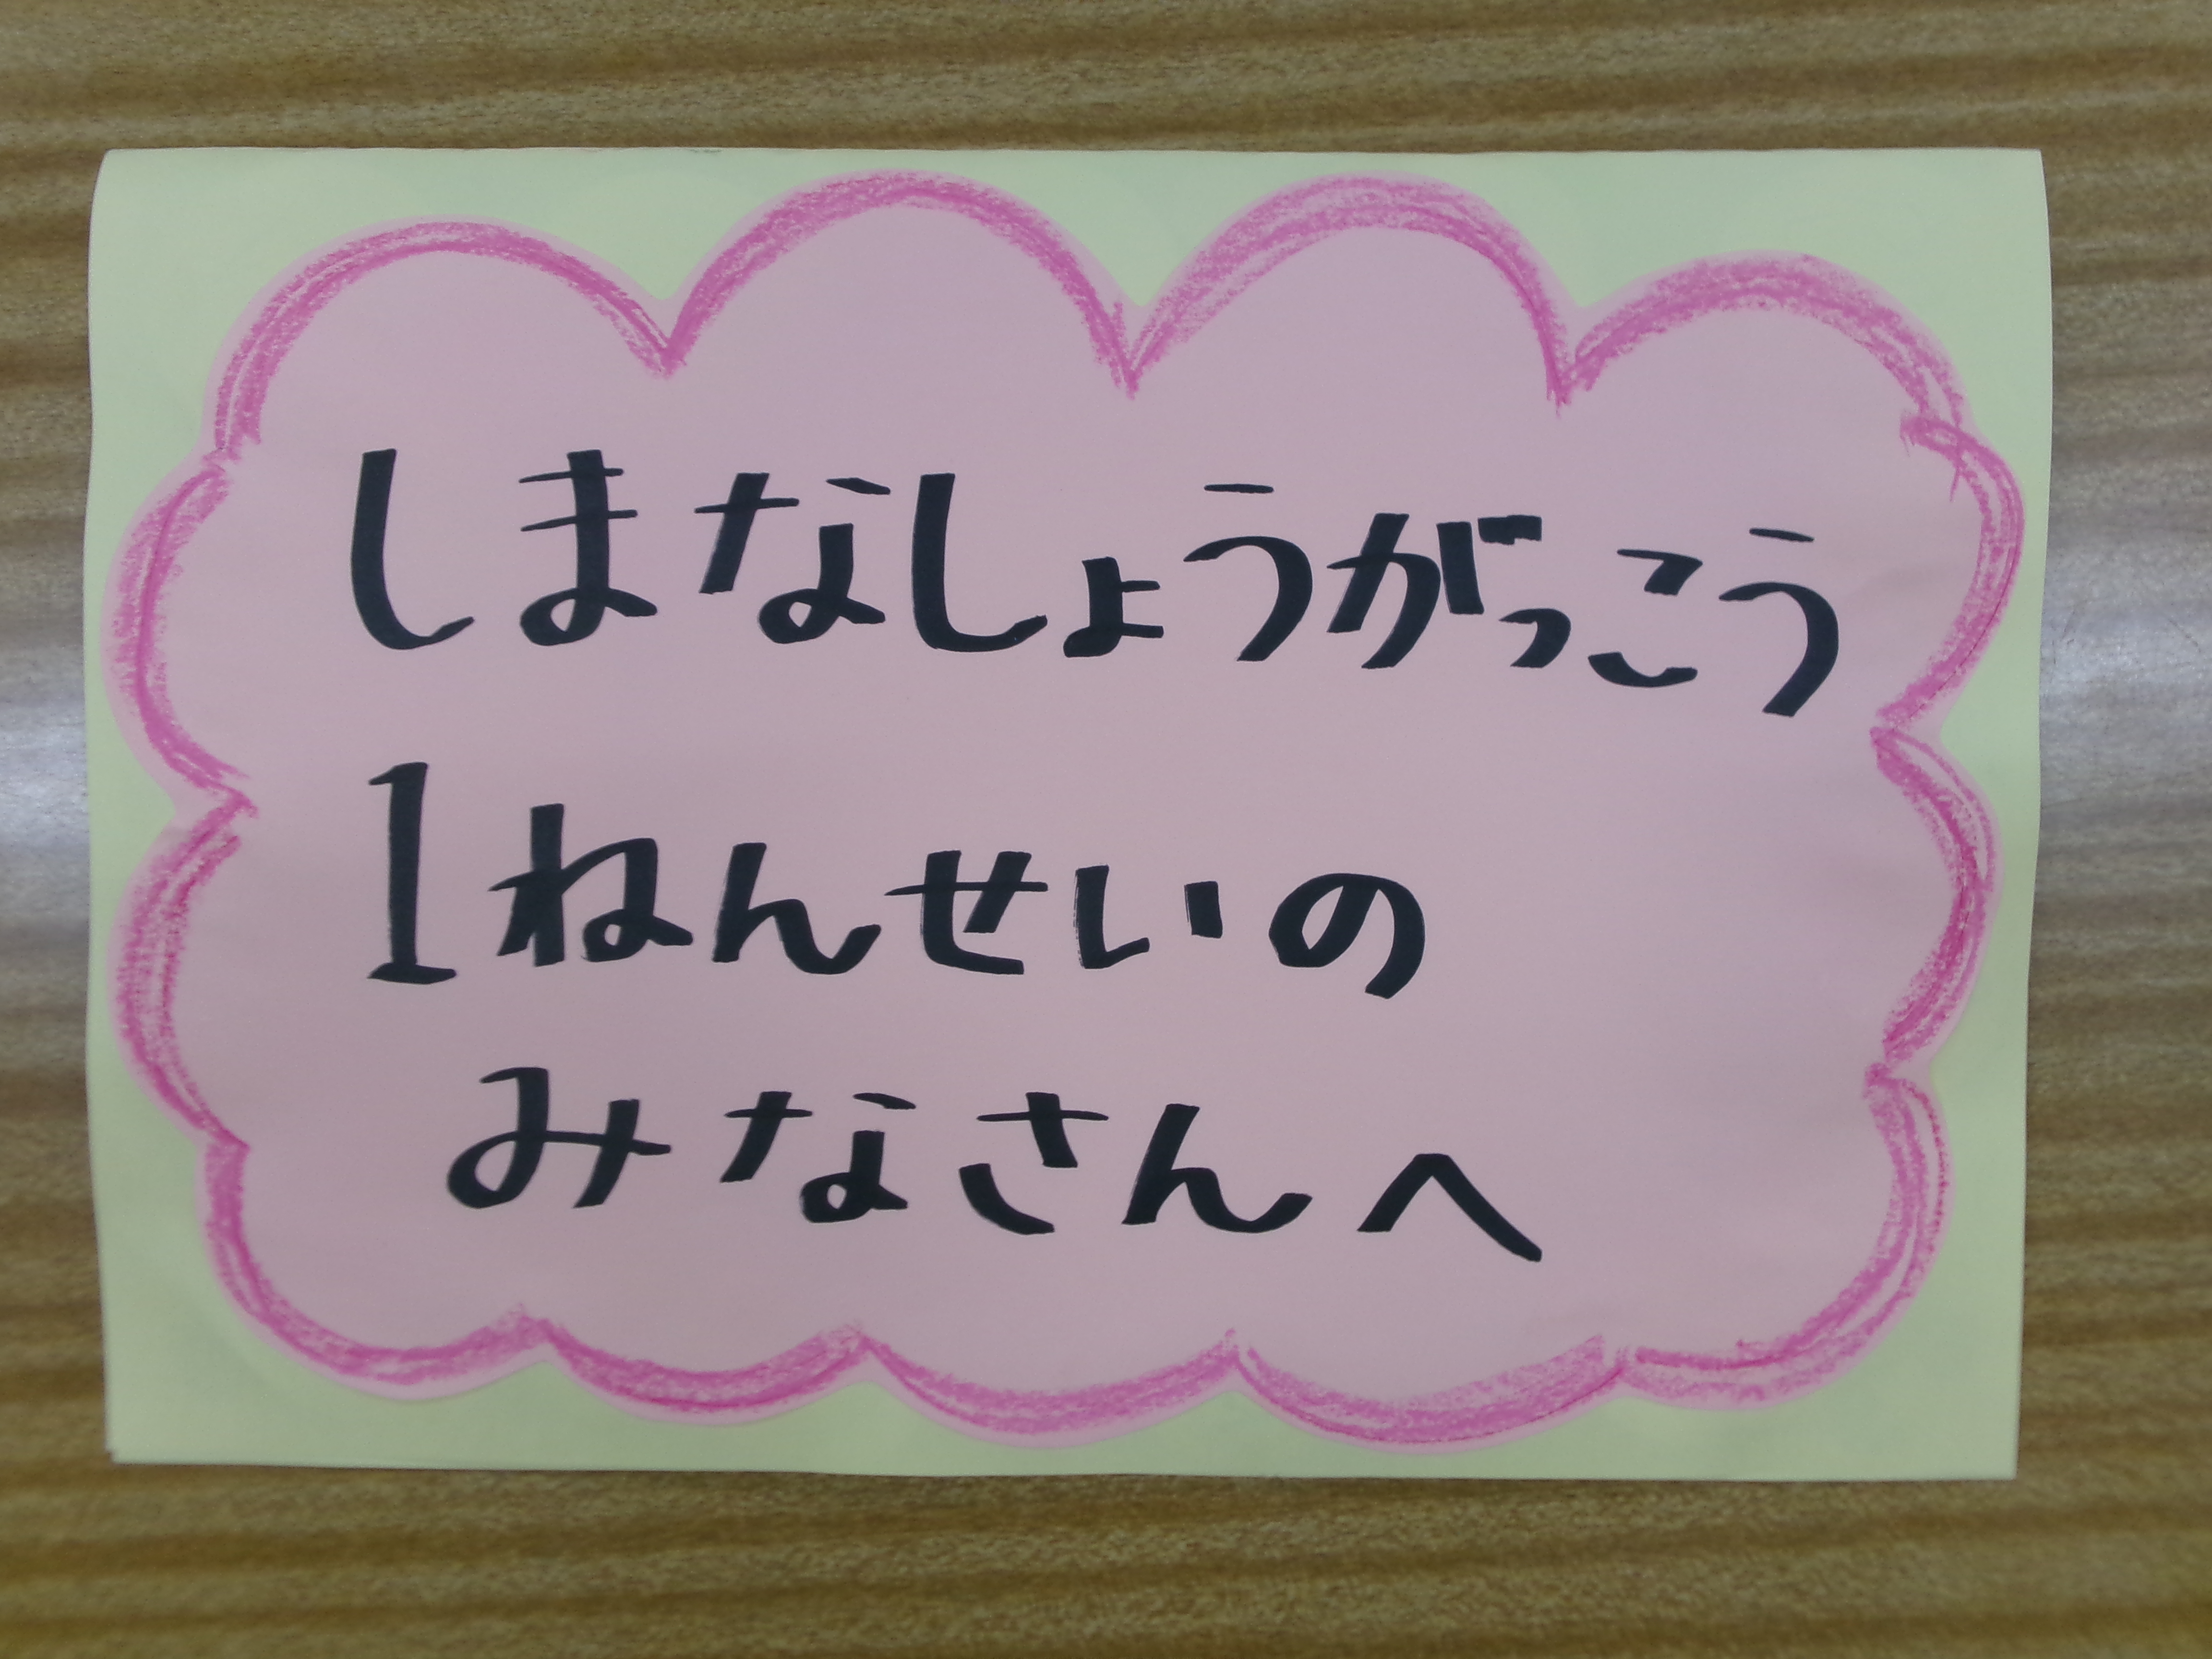 しまなしょうがっこう
1ねんせいの
みなさんへ